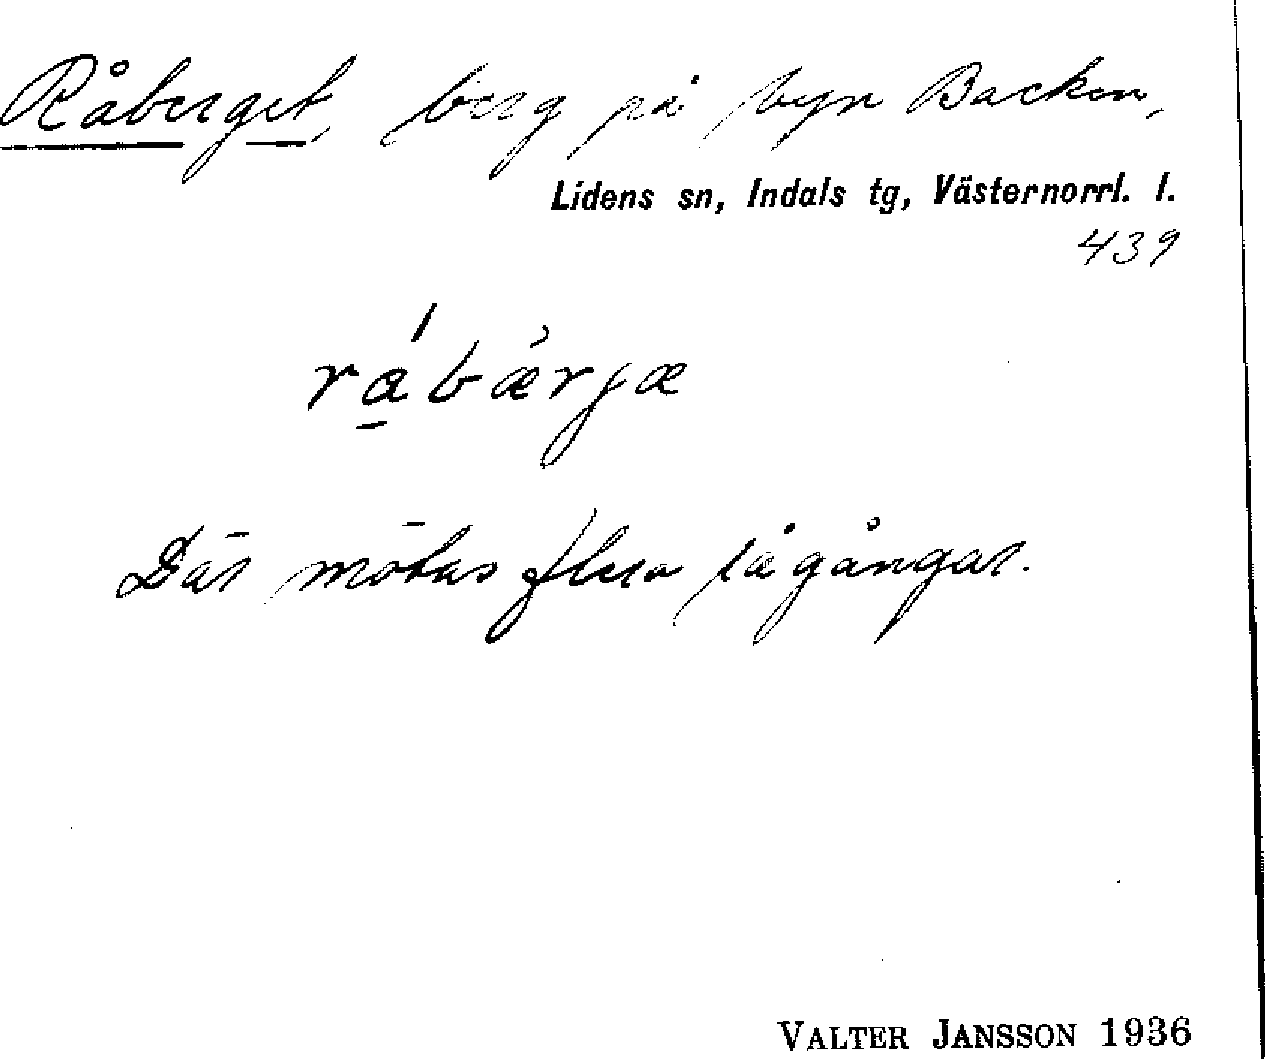 Råberget, berg på byn Backen,
Lidens sn, Indals tg, Västernorrl. l.
439
rábærjæ
Där mötas flera rågångar.
VALTER JANSSON 1936